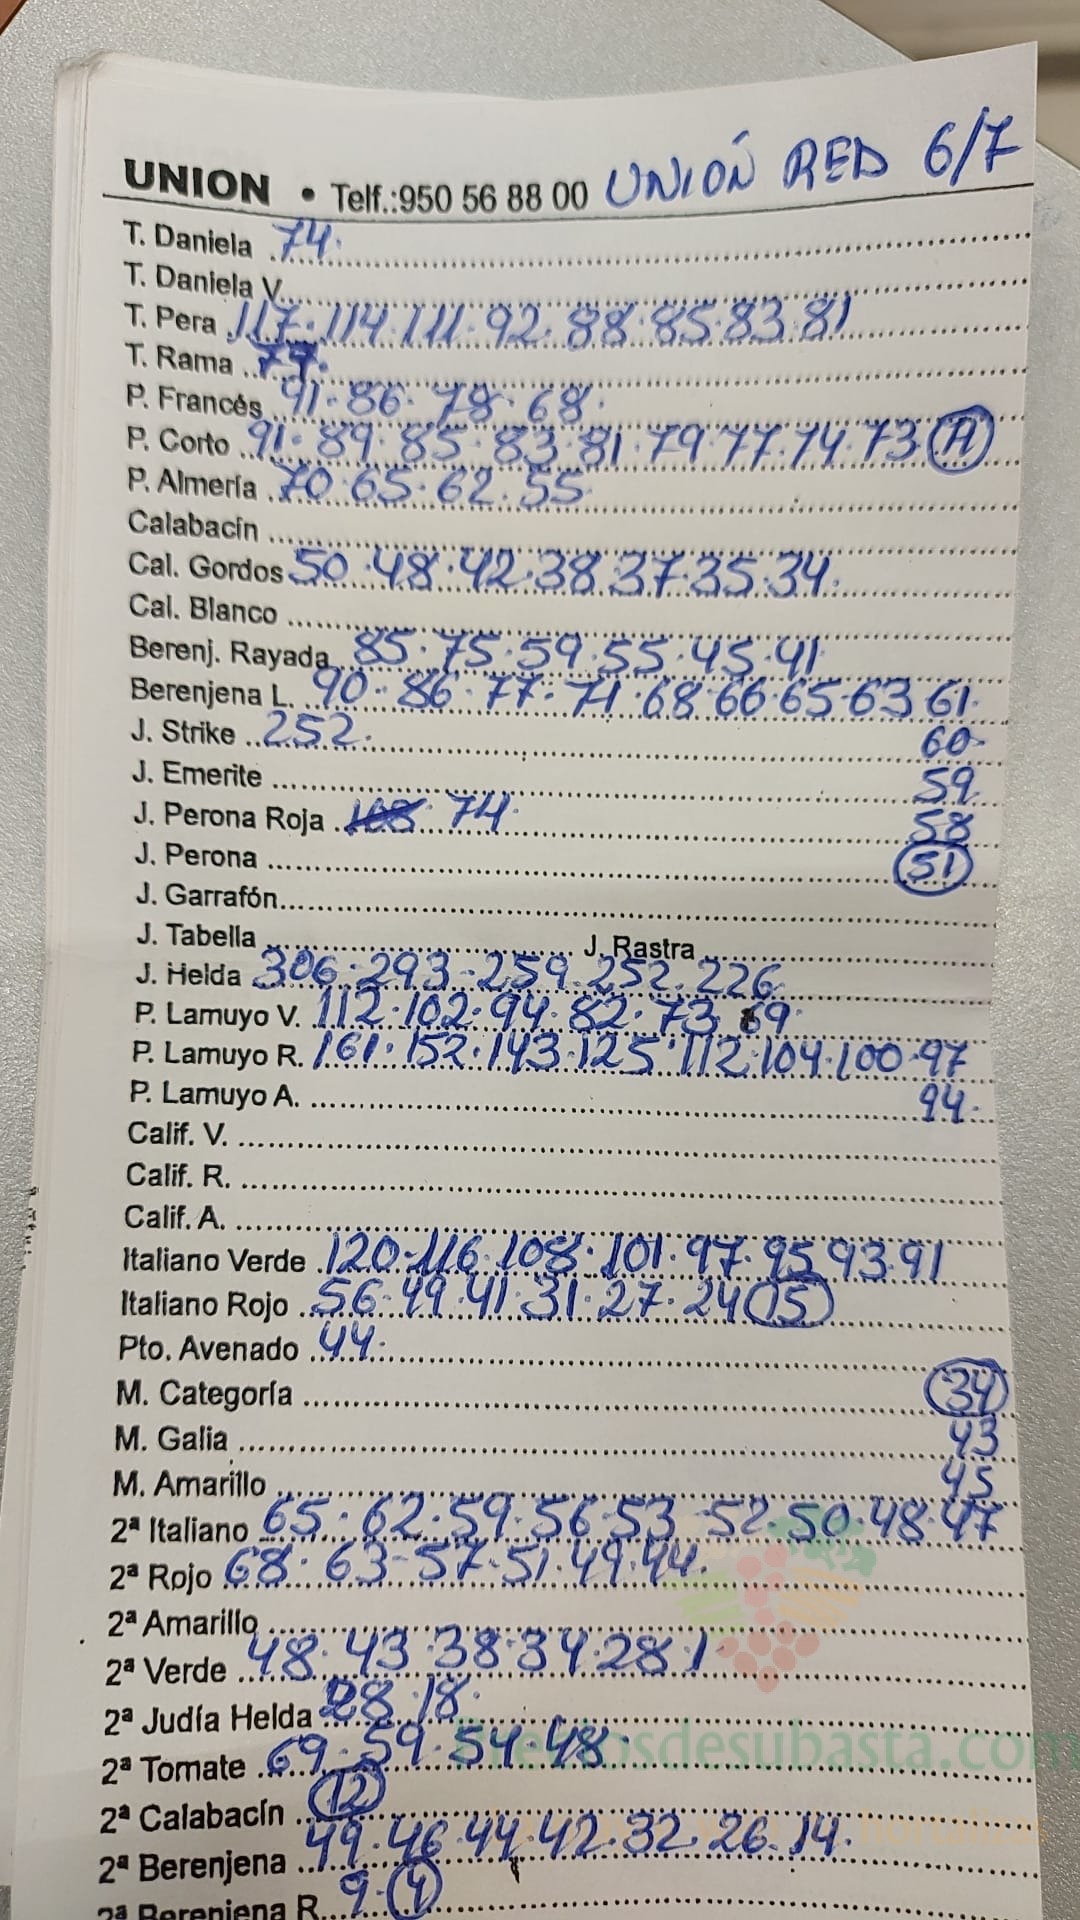 UNION • Telf.:950 56 88 00 UNIÓN RED 6/7
T. Daniela 74.
T. Daniela V.
T. Pera 117.114.111.92.88.85.83.81
T. Rama
P. Francés 91.86.78.68.
P. Corto 91.89.85.83.81.79.77.74.73
P. Almería 70.65.62.55
Calabacín
Cal. Gordos 50.48.42.38.37.35.34.
Cal. Blanco
Berenj. Rayada 85.75.59.55.45.41
Berenjena L. 90.86.77.71.68.66.65.63 61.
J. Strike 252. 60-
J. Emerite 59
J. Perona Roja 74. 58
J. Perona 51
J. Garrafón
J. Tabella J. Rastra
J. Helda 306.293-259.252.226
P. Lamuyo V. 112.102.94.82.73 69.
P. Lamuyo R. 161.152.143.125.112.104.100.97
P. Lamuyo A. 94.
Calif. V.
Calif. R.
Calif. A.
Italiano Verde 120-116.108.101.97.95.93.91
Italiano Rojo 56.49.41.31.27.24 15
Pto. Avenado 44.
M. Categoría 34
M. Galia 43
M. Amarillo 45
2ª Italiano 65.62.59.56.53 52.50.48.47
2ª Rojo 68.63-57.51.49.44.
2ª Amarillo
2ª Verde 48.43.38.34.28.1
2ª Judía Helda 28.18.
2ª Tomate 69.59.54.48.
2ª Calabacín 12
2ª Berenjena 49.46.44.42.32.26.14.
2ª Berenjena R. 9.4
Preciosdesubasta.com